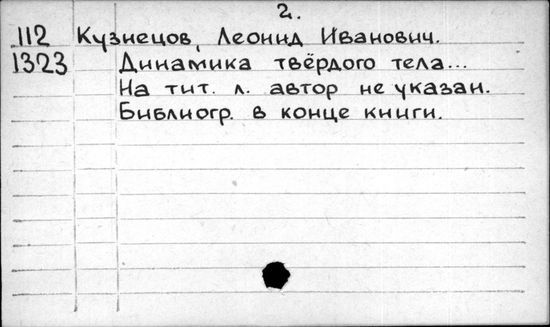 2.
112 Кузнецов, Леонид Иванович.
1323 Динамика твёрдого тела...
На тит. л. автор не указан.
Библиогр. в конце книги.